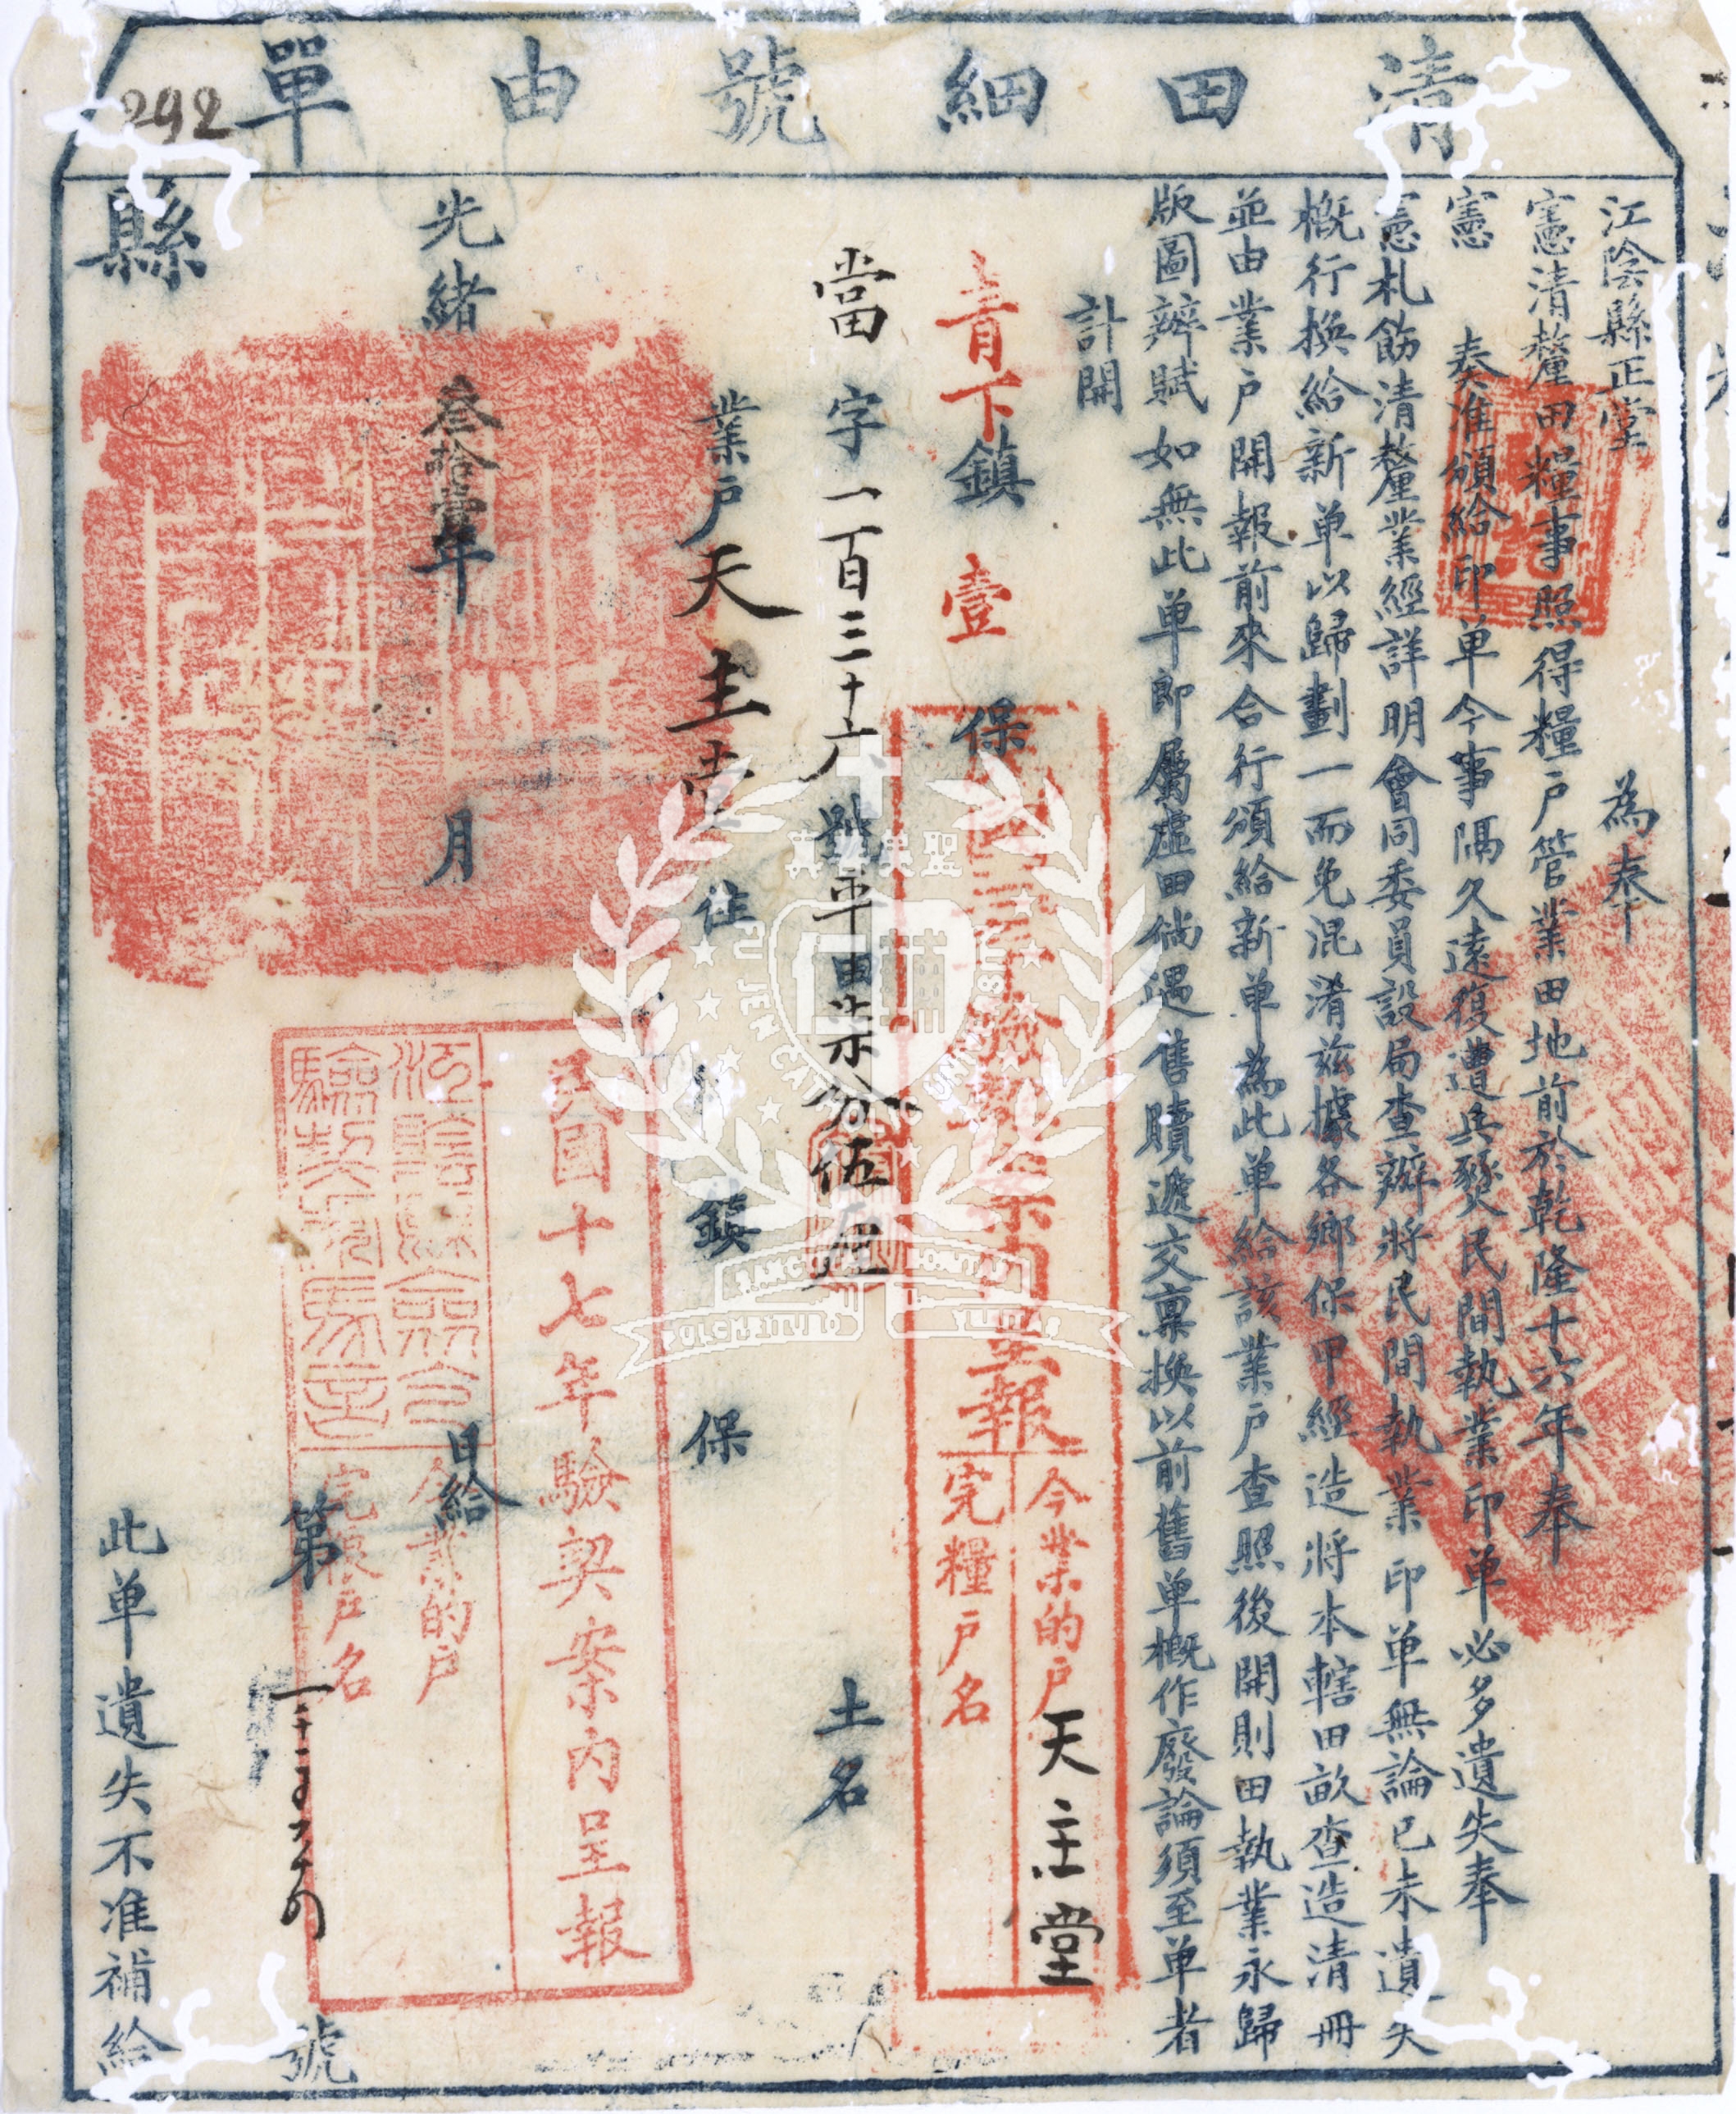 清田細號由單
292
江陰縣正堂 為奉
憲清釐田糧事照得糧戶管業田地前於乾隆十六年奉
憲 奏准頒給印单今事隔久遠復遭兵燹民間執業印单必多遺失奉
憲札飭清釐業經詳明會同委員設局查辦將民間執業印单無論已未遺失
概行換給新单以歸劃一而免混淆茲據各鄉保甲經造將本轄田畝查造清冊
並由業户開報前來合行頒給新单為此单給該業户查照後開則田執業永歸
版圖辦賦如無此单即屬虛田倘遇售贖遞交稟換以前舊单概作廢論須至单者
計開
青下鎮 壹 保
當字一百三十六號平田柒分伍厘 土名
業户天主堂 住 鎮 保
光緒叁拾 年 月 日給
縣
第 號
此单遺失不准補給
驗契案內呈報
今業的户 天主堂
完糧户名
民國十七年驗契案內呈報
江陰縣
驗契
今業的户
完糧户名
真善美聖
輔仁
FU JEN CATHOLIC UNIVERSITY
SANCTITAS BONITAS
PULCHRITUDO VERITAS